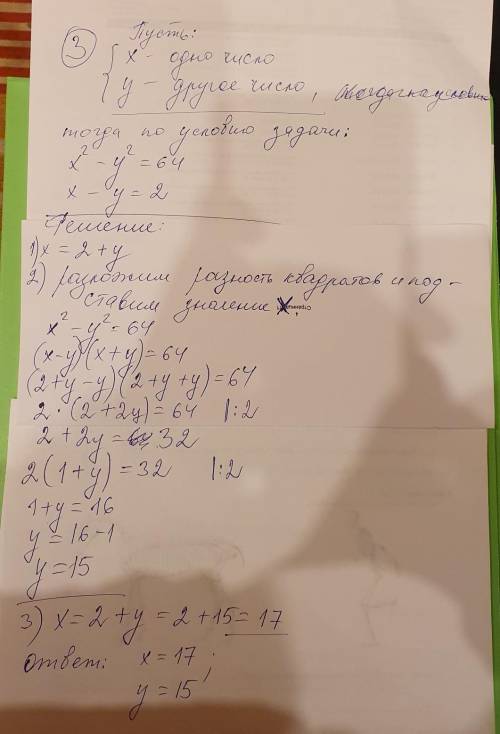 3
Пусть:
x - одно число
y - другое число,
тогда по условию задачи:
x² - y² = 64
x - y = 2
Решение:
1) x = 2 + y
2) разложим разность квадратов и под-
ставим значение x,
x² - y² = 64
(x-y)(x+y) = 64
(2+y-y)(2+y+y) = 64
2·(2+2y) = 64 |:2
2 + 2y = 32
2(1+y) = 32 |:2
1+y = 16
y = 16-1
y = 15
3) x = 2 + y = 2 + 15 = 17
ответ: x = 17;
y = 15